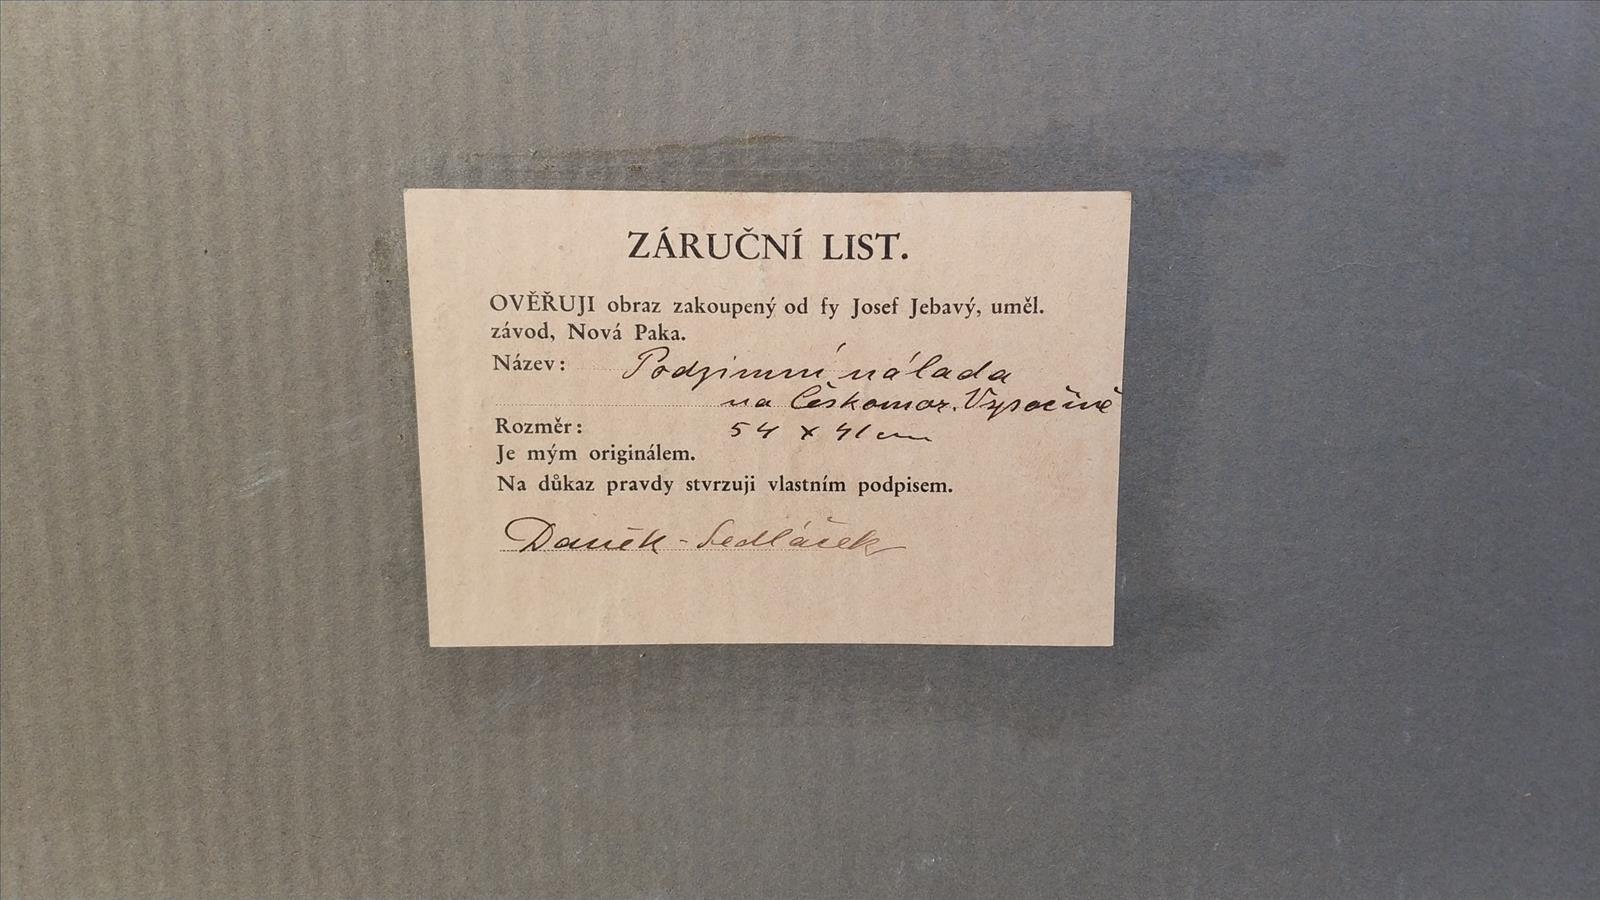 ZÁRUČNÍ LIST.
OVĚŘUJI obraz zakoupený od fy Josef Jebavý, uměl.
závod, Nová Paka.
Název: Podzimní nálada
na Českomor. Vysočině
Rozměr: 54 x 41 cm
Je mým originálem.
Na důkaz pravdy stvrzuji vlastním podpisem.
Daněk - Sedláček